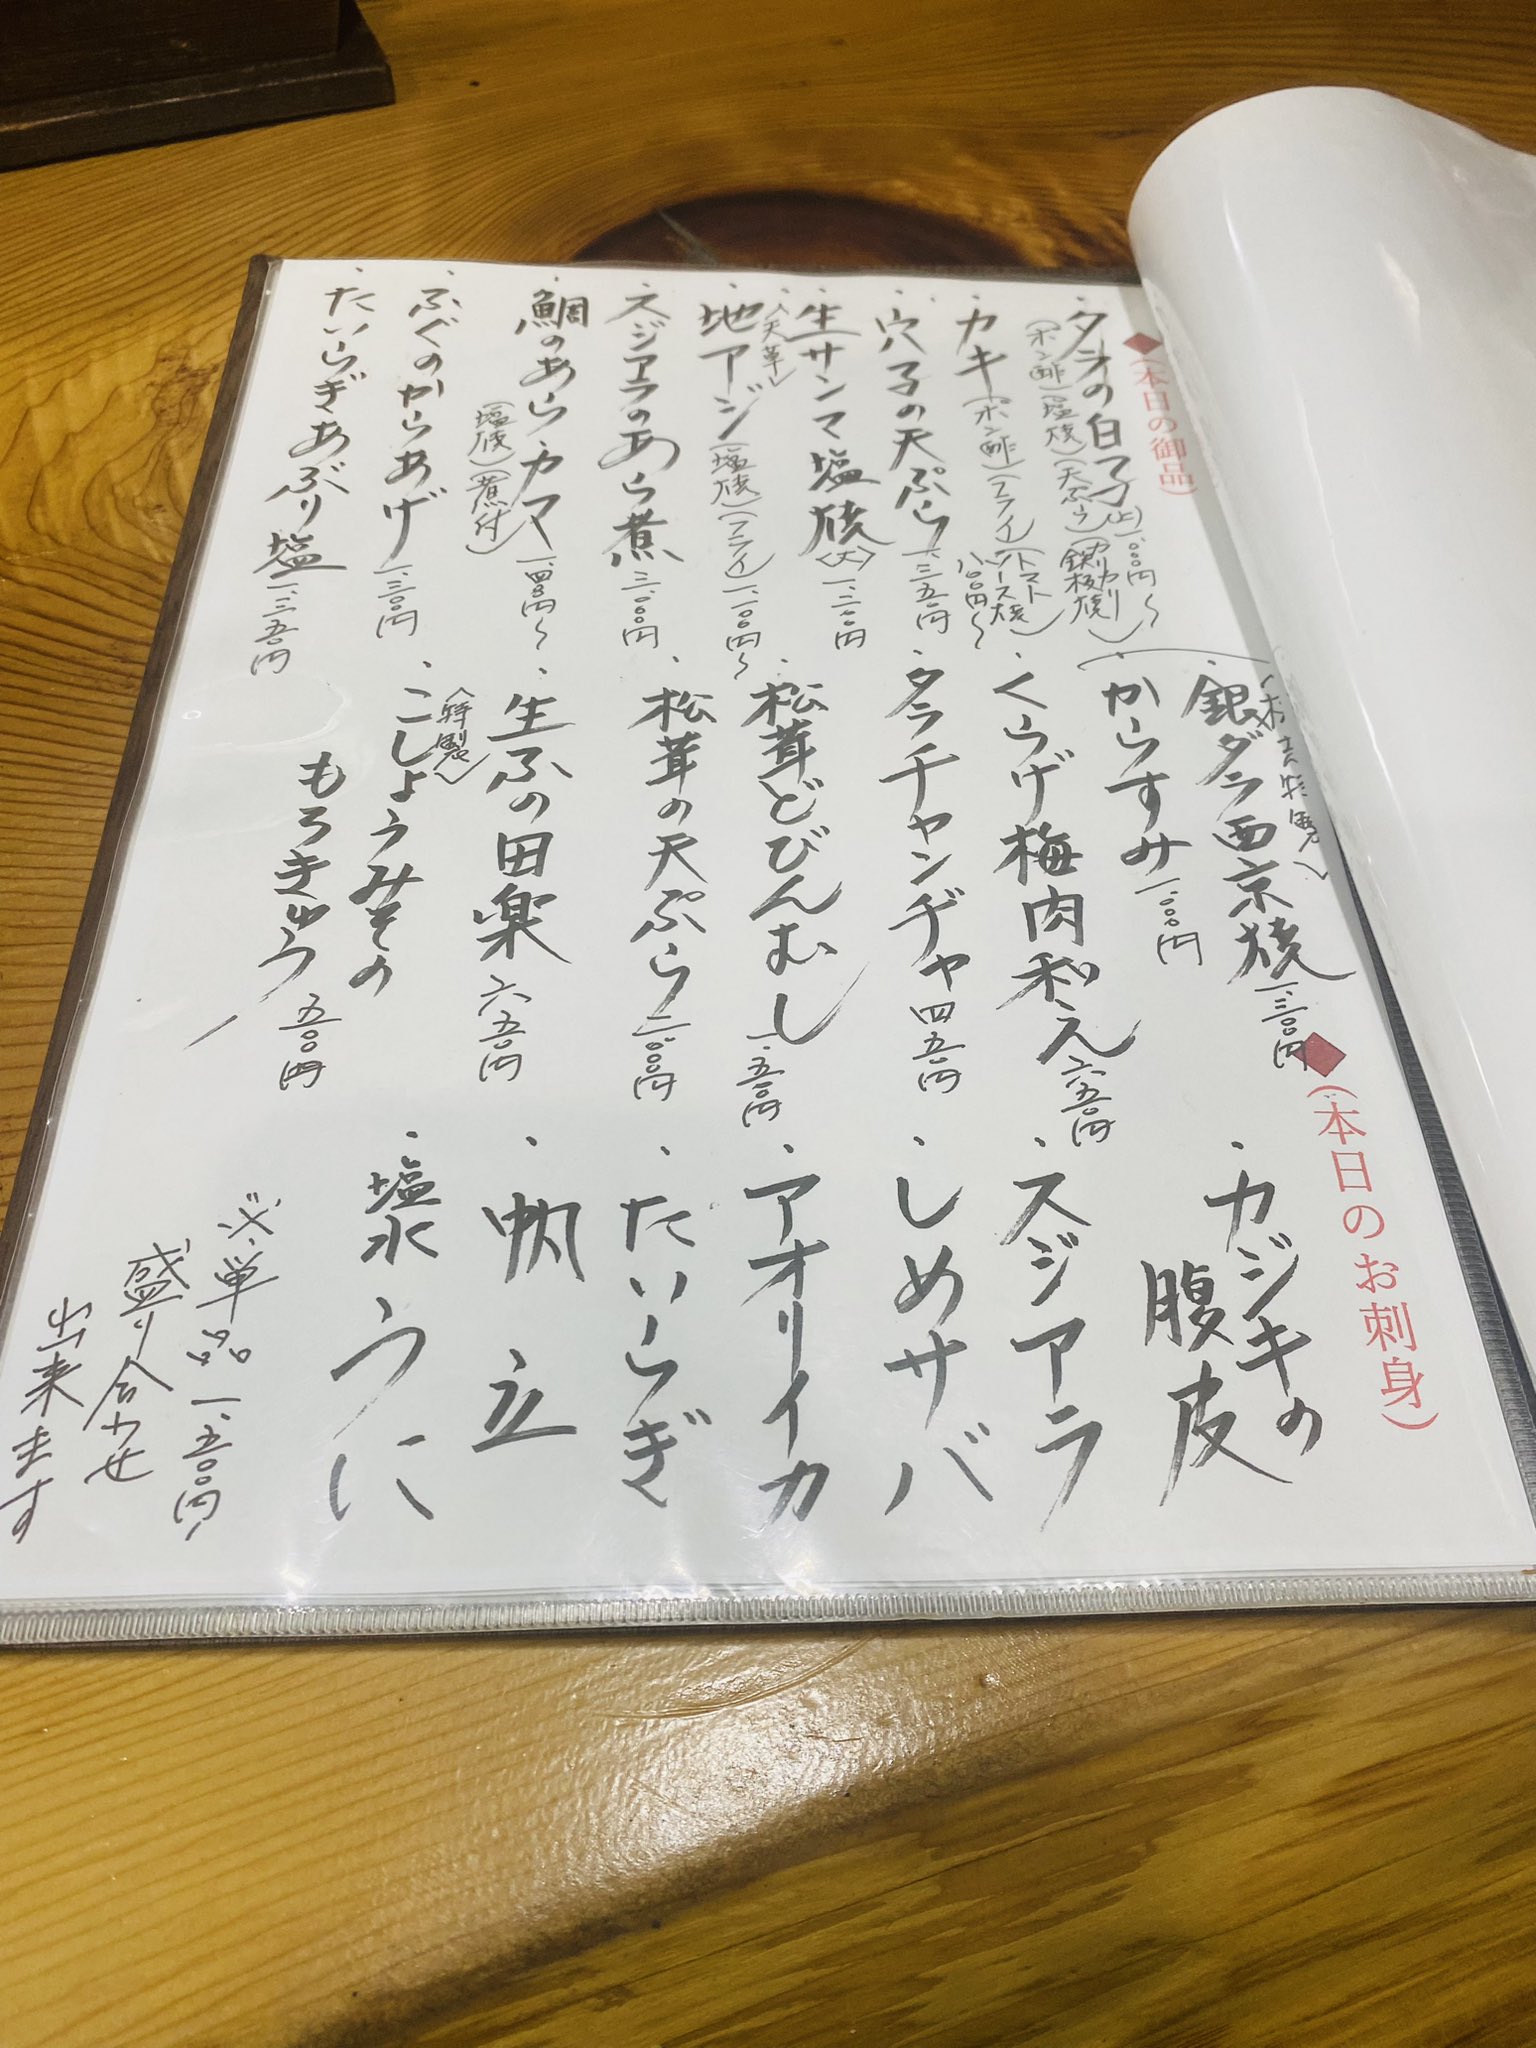 ◆(本日の御品)
・タラの白子(上)一、〇〇〇円〜
(ポン酢)(塩焼)(天ぷら)(カリカリ鉄板焼)
・カキ(ポン酢)(フライ)(トマトソース焼)八〇〇円〜
・穴子の天ぷら 一、三五〇円
・生サンマ塩焼〈大〉一、二〇〇円
〈天草〉
・地アジ(塩焼)(フライ)一、二〇〇円〜
・スジアラのあら煮 三、〇〇〇円
・鯛のあらカマ 一、四〇〇円〜
(塩焼)(煮付)
・ふぐのからあげ 一、三〇〇円
・たいらぎあぶり塩 一、三五〇円
・銀ダラ西京焼 一、三〇〇円
・からすみ 一、〇〇〇円
・くらげ梅肉和え 六五〇円
・タラチャンヂャ 四五〇円
・松茸どびんむし 一、五〇〇円
・松茸の天ぷら 二、〇〇〇円
・生ふの田楽 六五〇円
〈特製〉
・こしょうみその
もろきゅう 五〇〇円
◆(本日のお刺身)
・カジキの
腹皮
・スジアラ
・しめサバ
・アオリイカ
・たいらぎ
・帆立
・塩水うに
※単品一、五〇〇円〜
盛り合わせ
出来ます